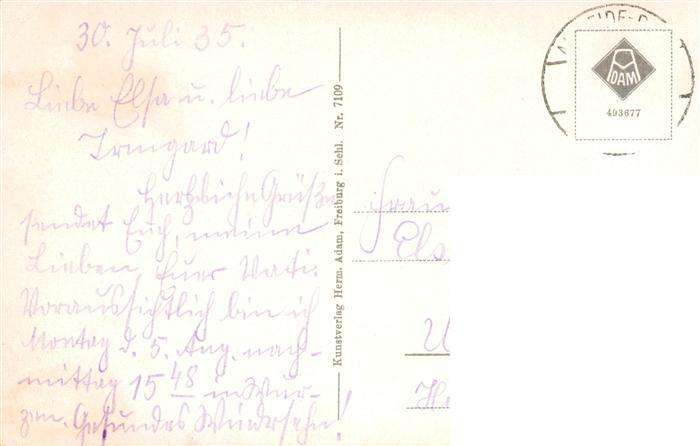 30. Juli 35.
Liebe Elsa u. liebe
Irmgard!
Herzliche Grüße
sendet Euch, meine
Lieben, Euer Vati.
Voraussichtlich bin ich
Montag d. 5. Aug. nach-
mittag 15 48 in Wur-
zen. Gesundes Wiedersehn!
Kunstverlag Herm. Adam, Freiburg i. Schl. Nr. 7109
ADAM
493677
Frau
Els